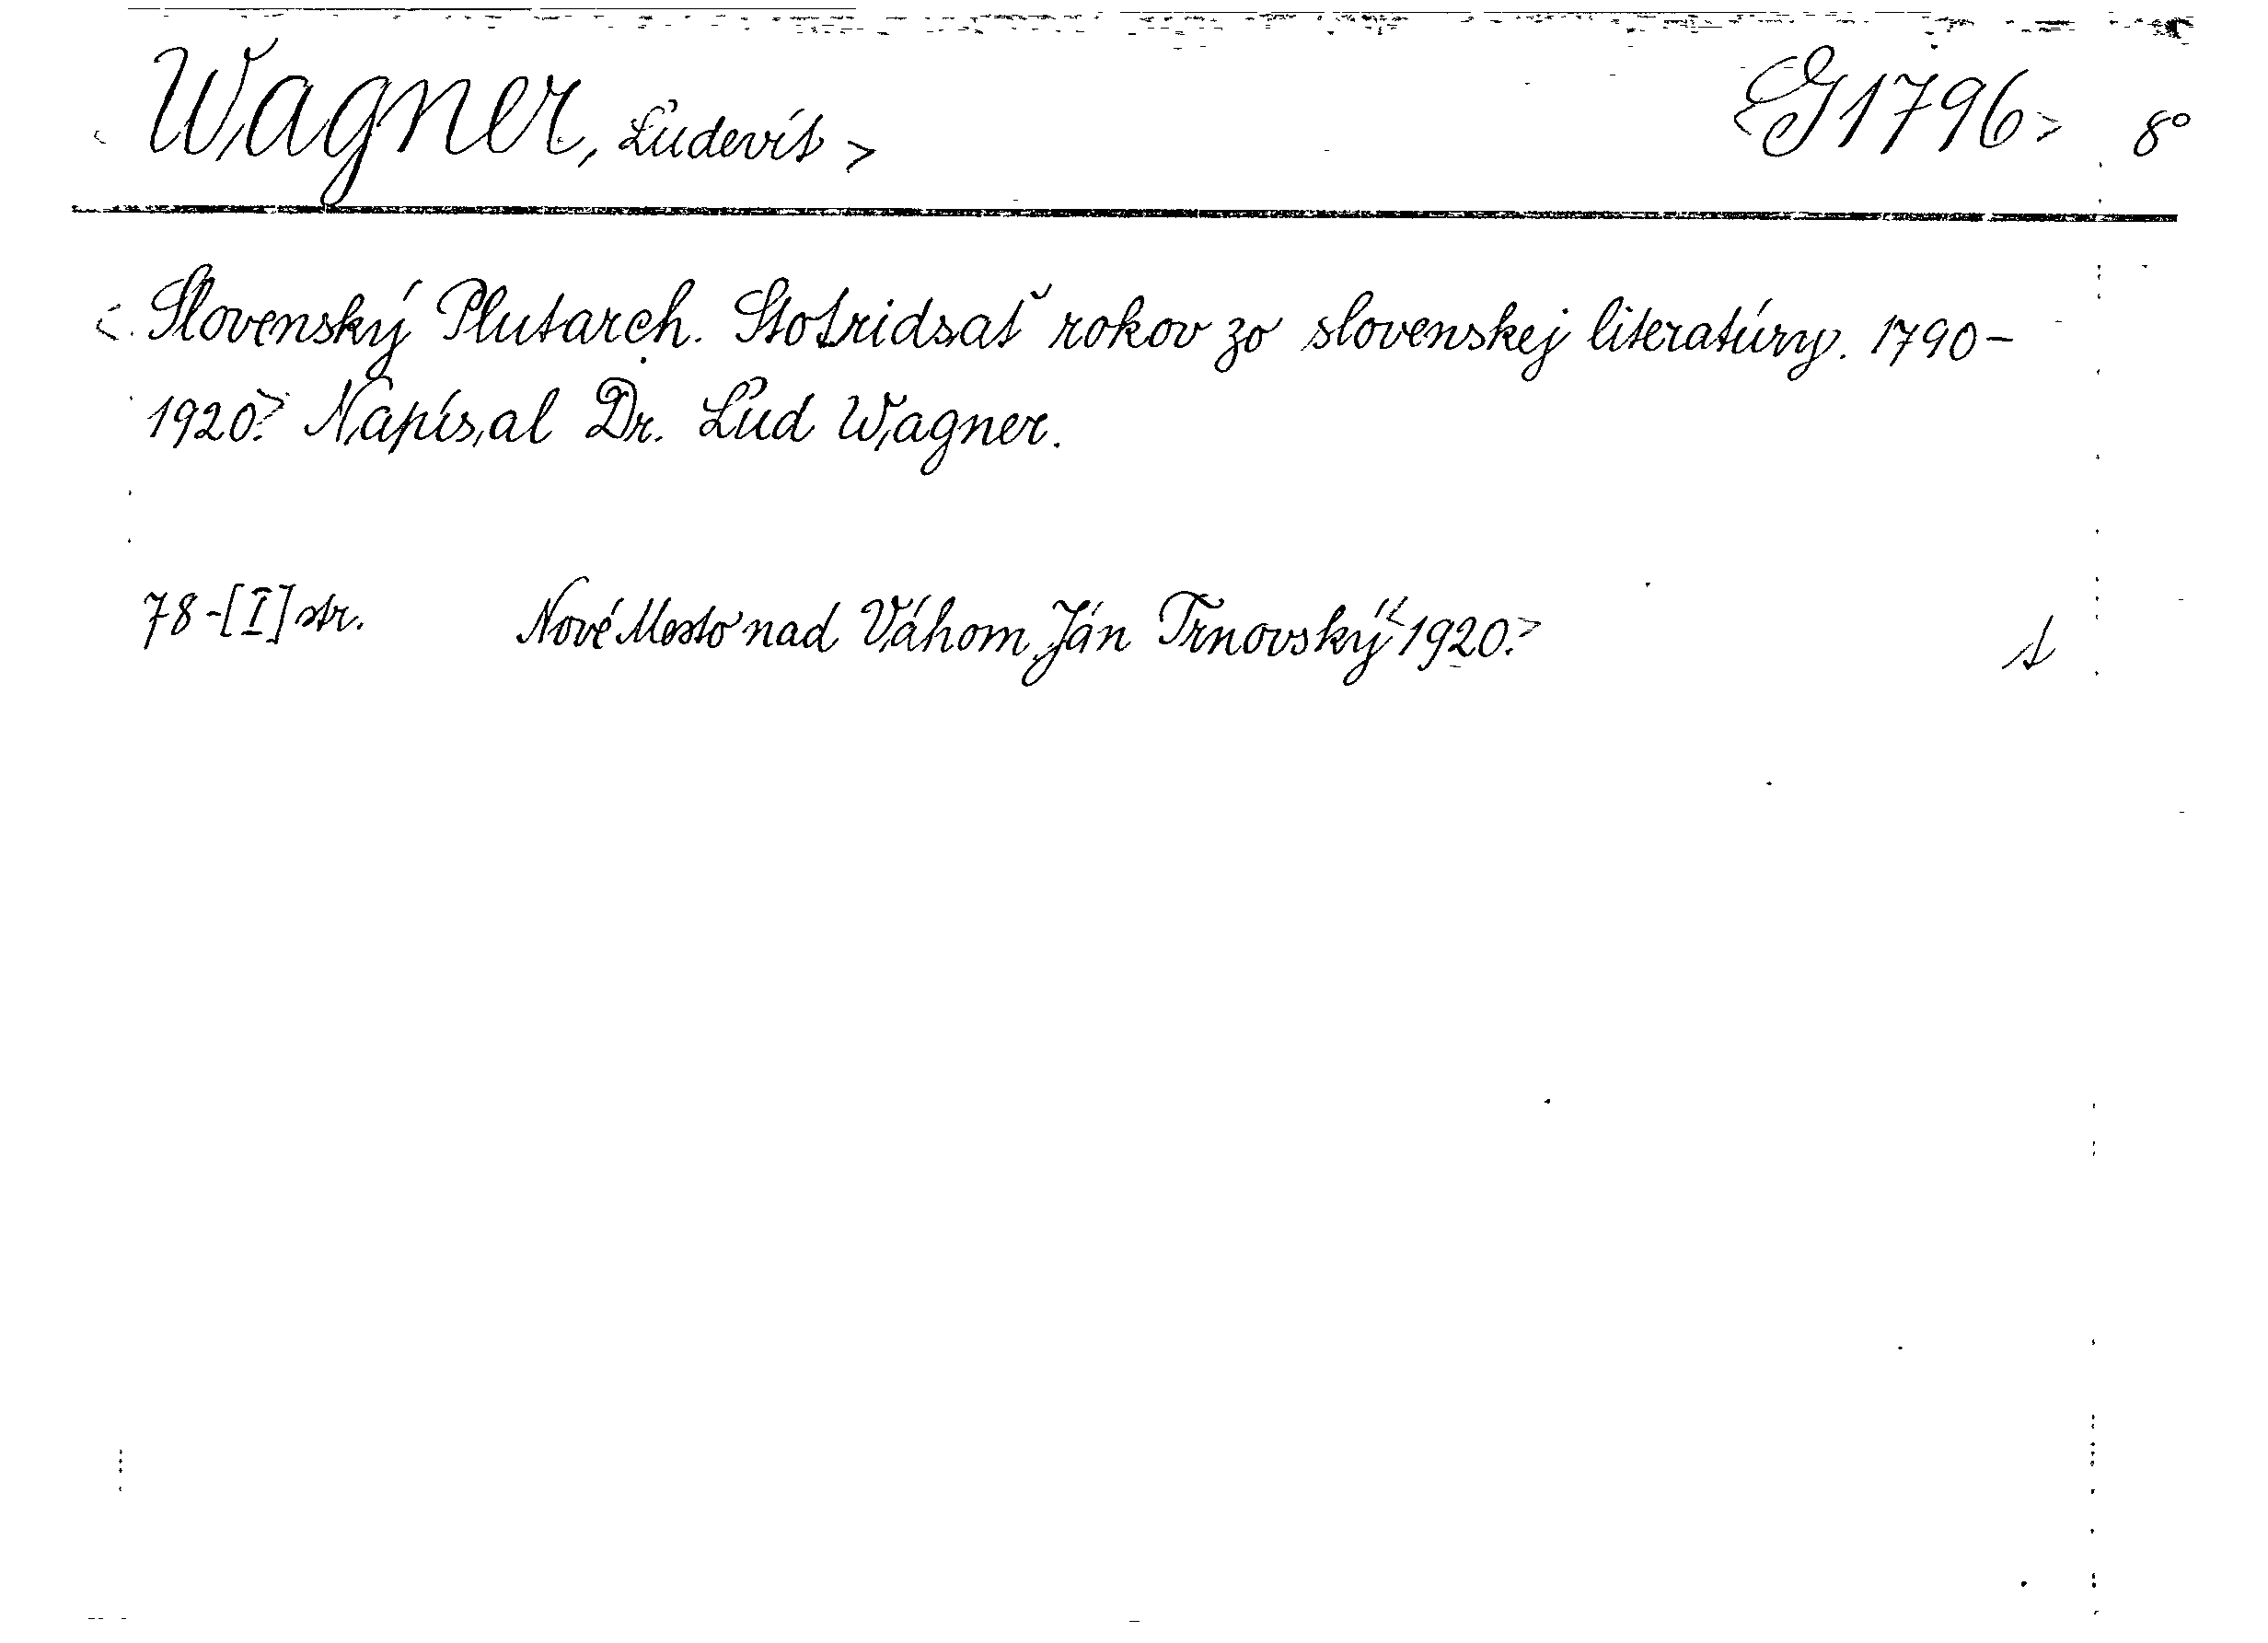 < Wagner, Ľudevít > <G 1796> 8°
< Slovenský Plutarch. Stotridsať rokov zo slovenskej literatúry. 1790-
1920.> Napísal Dr. Ľud Wagner.
78-[I] str. Nové Mesto nad Váhom, Ján Trnovský <1920.> s